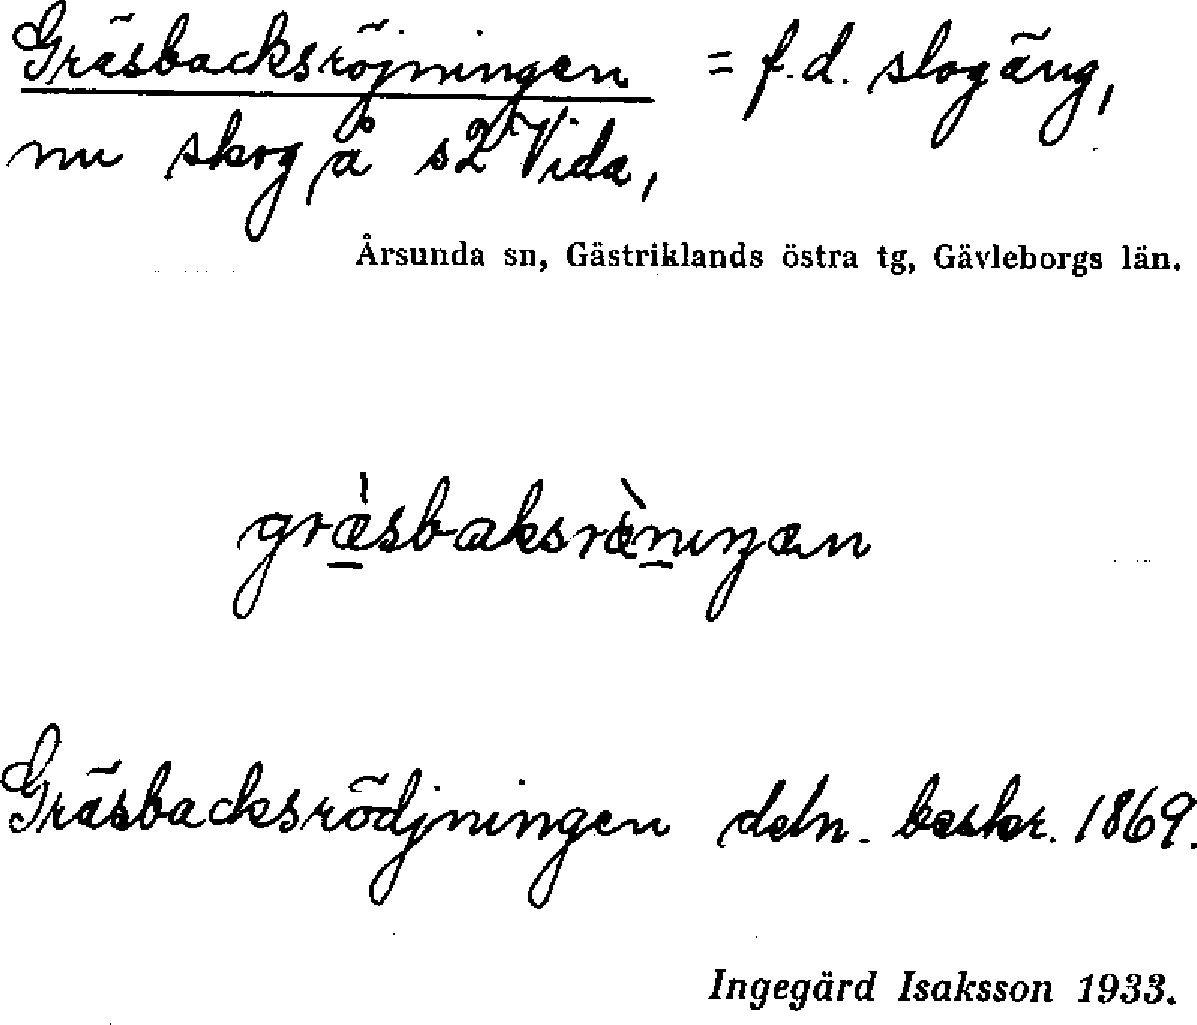 Gräsbacksröjningen = f.d. slogäng,
nu skog å s2 Vida,
Årsunda sn, Gästriklands östra tg, Gävleborgs län.
græ̀sbaksrœ̀nıŋan
Gräsbacksrödjningen deln. beskr. 1869.
Ingegärd Isaksson 1933.